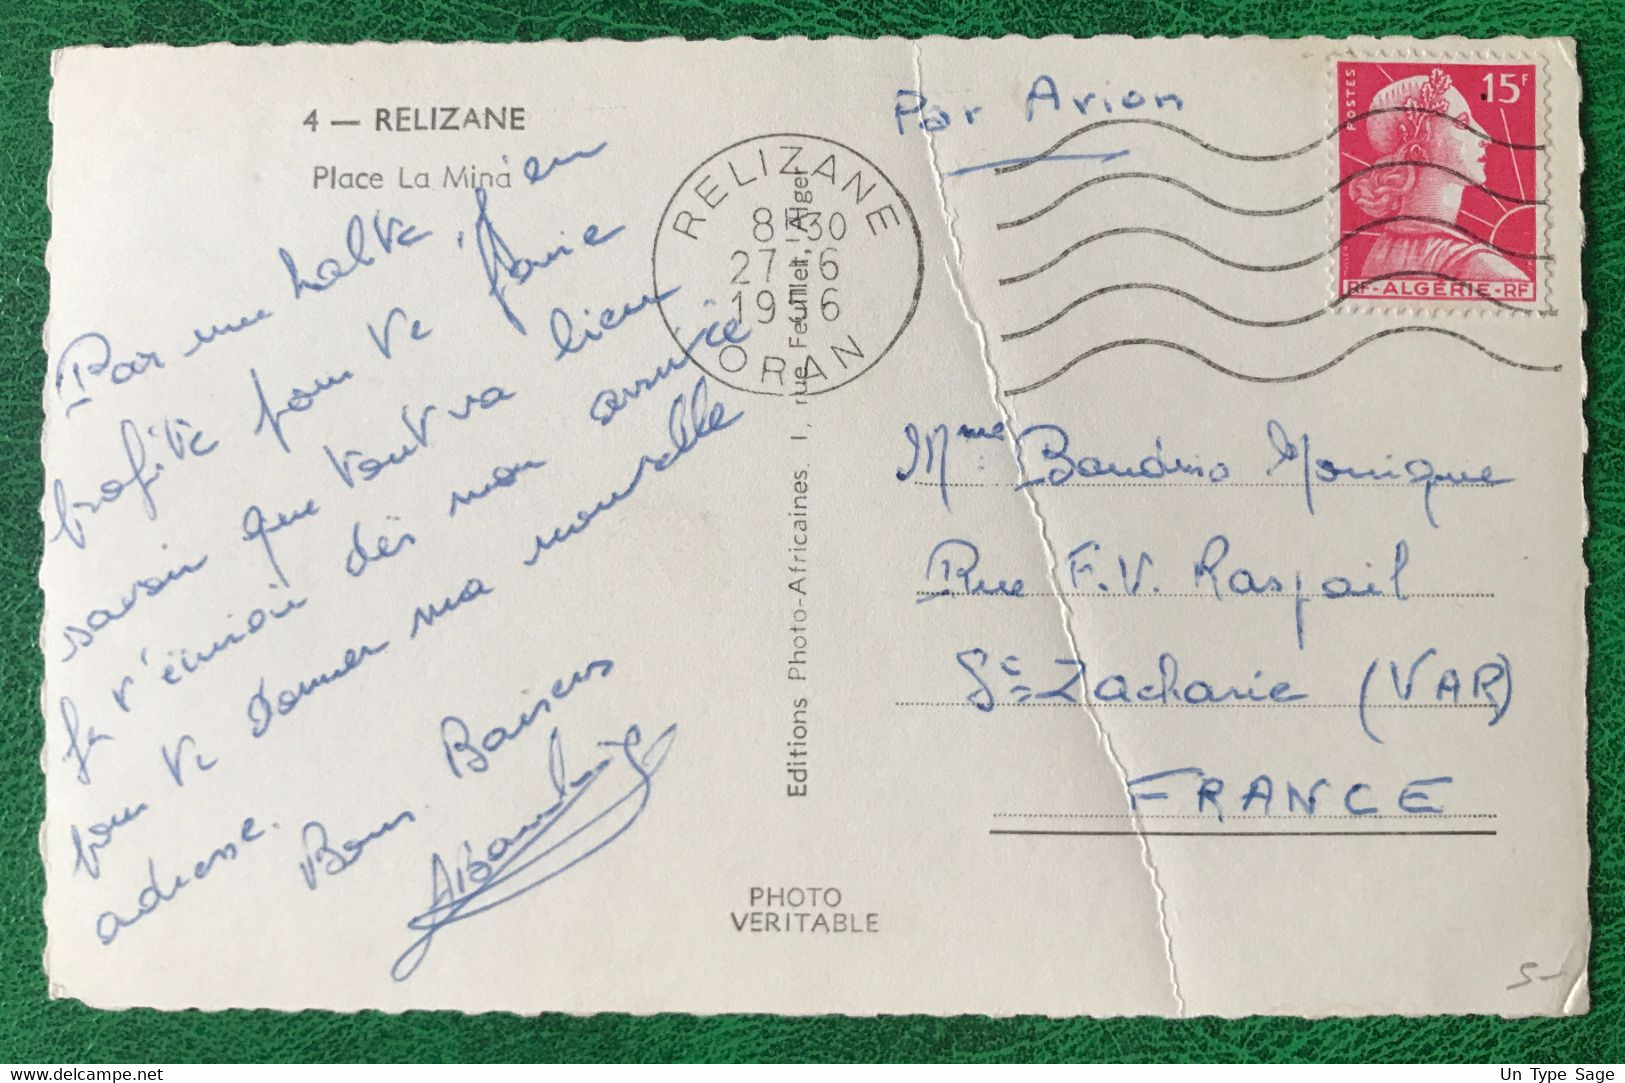 4 — RELIZANE
Place La Mina
Par une halte, j'en
profite pour te faire
savoir que tout va bien
Je t'écrirai dès mon arrivée
pour te donner ma nouvelle
adresse.
Bons Baisers
RELIZANE
8 H 30
27 - 6
19 6
ORAN
Editions Photo-Africaines. 1, rue Feuillet, Alger
PHOTO
VERITABLE
Par Avion
POSTES
15F
RF-ALGÉRIE-RF
Mme Baudino Monique
Rue F.V. Raspail
St Zacharie (VAR)
FRANCE
5-
Un Type Sage